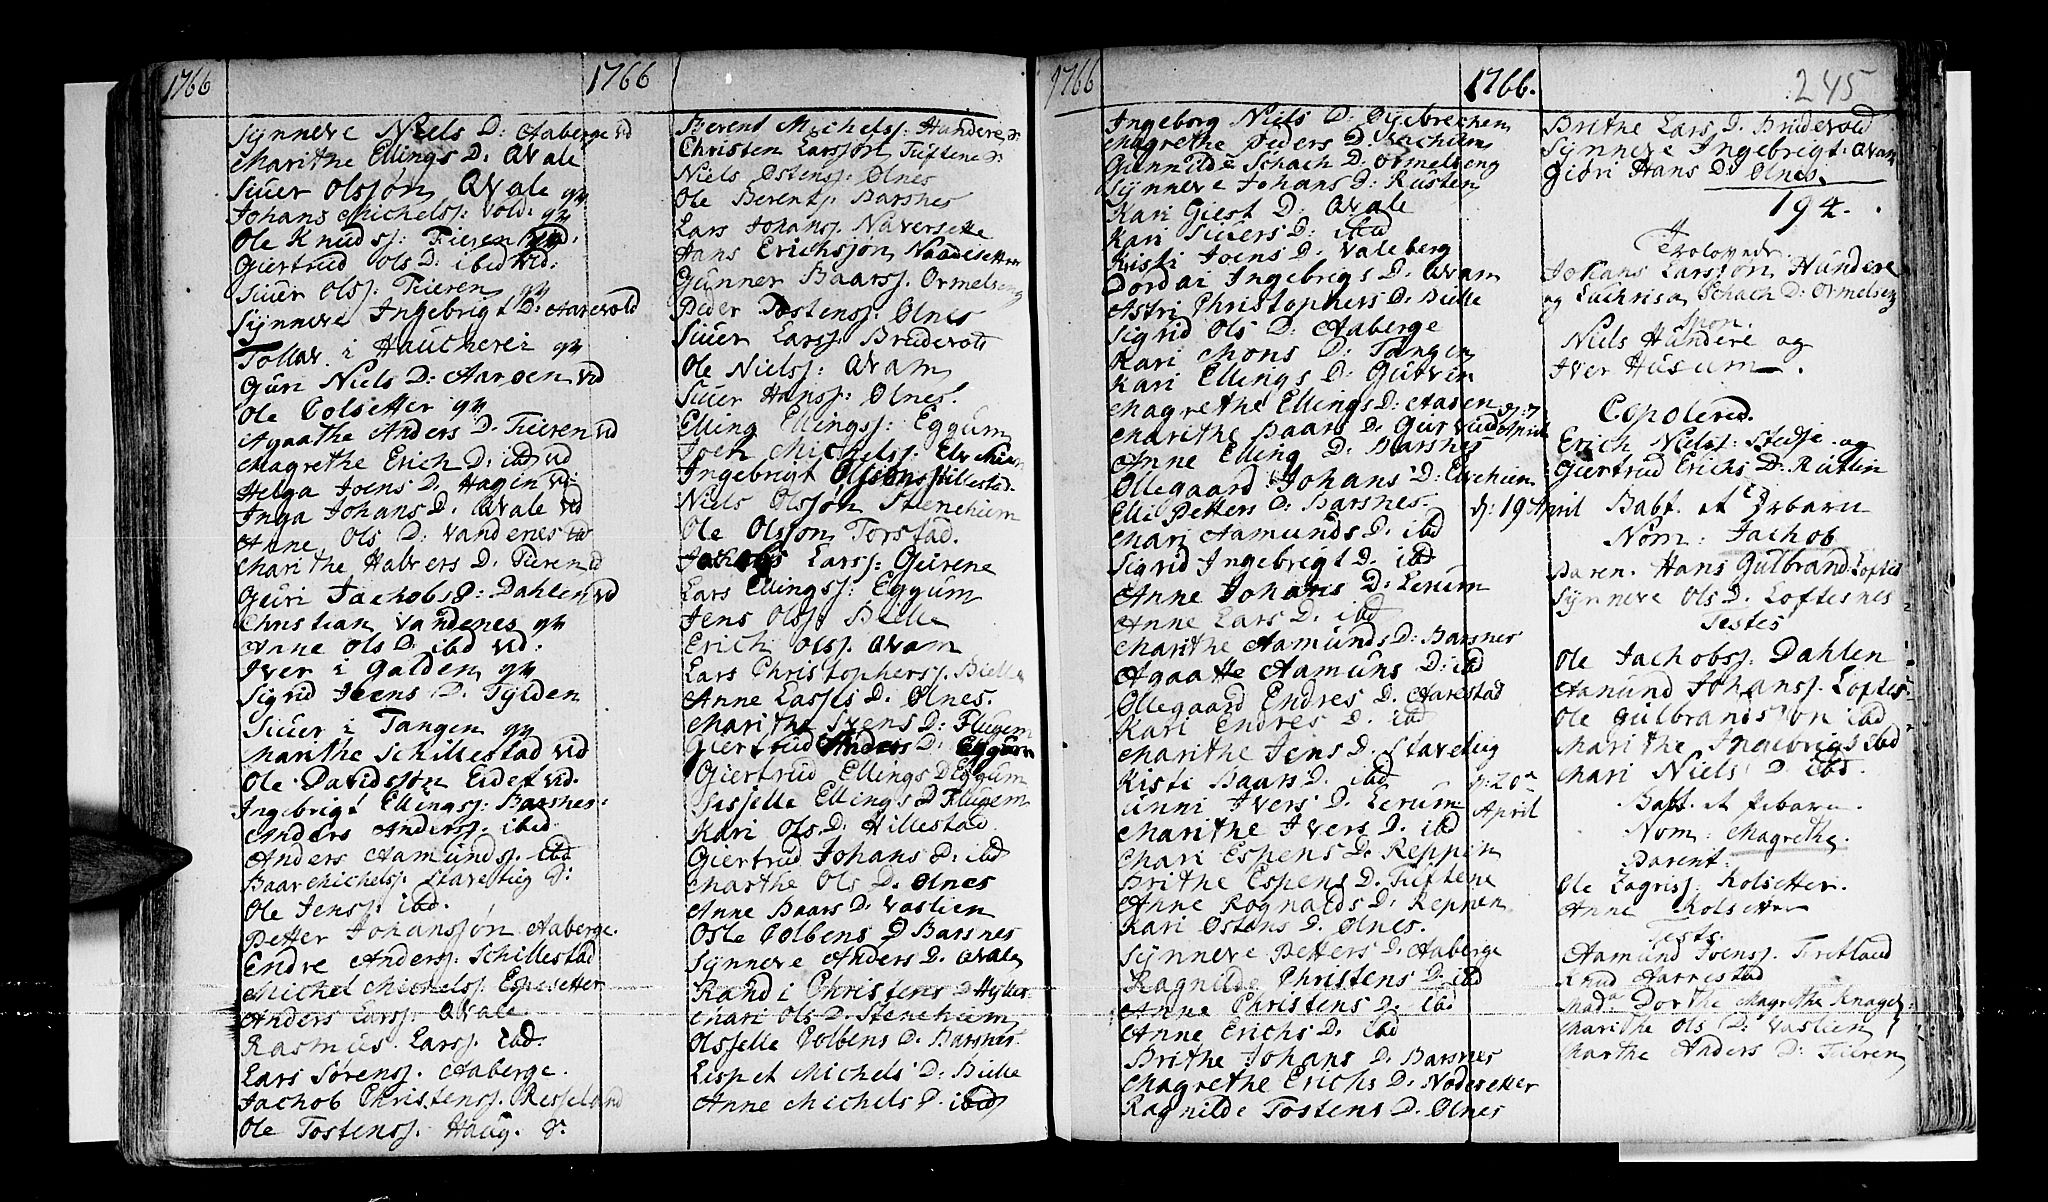 1766
1766
Sÿnneve Niels D: Aaberge vid
Marithe Ellings D. Qvale
Siuer Olssøn Qvale gv
Johans Michels: Vold: gv
Ole Knuds: Fieren vid.
Giertrud Ols D. ibid vid:
Siuer Olss: Fieren gv
Sÿnneve Ingebrigt D: Aarevold
Tollav i Hauchere: gv
Guri Niels D: Aaroen vid
Ole Colsetter gv
Agaathe Anders D. Fieren vid
Magrethe Erich D: ibd vd
Helga Joens D. Hagen vi:
Inga Johans D. Qvale vid
Anne Ols D: Vandenes vid
Marithe Halvers D. Fieren vd
Guri Jachobs D: Dahlen vd
Christian Vandenes gv
Anne Ols D. ibd vid:
Iver i Galden gv
Sigrid Joens D. Tÿlden
Siuer i Tangen gv
Marithe Schillestad vid
Ole Davidssøn Eidet vid.
Ingebrigt Ellingss: Barsnes:
Anders Anderss: ibid:
Anders Aamundss. ibd
Baar Michelss. Stavetiig D:
Ole Jenss: ibd.
Petter Johanssøn Aaberge.
Endre Anderss: Schillestad
Michel Michelss. Espesetter
Anders Larss: Qvale
Rasmus Larss. ibd.
Lars Sørenss. Aaberge.
Jachob Christenss. Resseland
Ole Tostenss. Haug. D:
Berent Michelss: Hundere D:
Christen Larssøn Tuftene D:
Niels Ostenss: Olnes
Ole Berentss. Barsnes
Lars Johanss. Naversette
Hans Erichssøn Naadesetter
Gunner Baarss. Ormelseng
Peder Tostenss. Olnes
Siuer Larss. Brudevold
Ole Nielss: Qvam
Siuer Hanss: Olnes.
Elling Ellingss: Eggum
Joen Michelss: Elvehium
Ingebrigt Olssøn Hillestad.
Niels Olssøn Stenehium
Ole Olssøn Torstad.
Jachob Larss: Geirene
Lars Ellingss: Eggum
Jens Olss: Bielle
Erich Olss. Qvam
Lars Christopherss. Bielle
Anne Lasses D. Olnes.
Marithe Svens D: Flugem
Giertrud Anders D: Eggum
Giertrud Ellings D Eggum
Sisselle Ellings D Flugem
Kari Ols D. Hillestad
Giertrud Johans D: ibd
Marthe Ols D. Olnes
Anne Baars D. Vastien
Osle Colbens D Barsnes
Sÿnneve Anders D. Qvale
Randi Christens D Hÿlle
Mari Ols D. Stenehium
Olsselle Colbens D. Barsnes
Lispet Michels D: Bielle
Anne Michels D. ibd
1766
1766.
245
Ingeborg Niels D: Diebrechen
Magrethe Peders D. Elvehium
Gunnilde Schach D: Ormelseng
Sÿnneve Johans D: Rusten
Kari Giest D: Qvale
Kari Siuers D: ibid
Kisti Joens D: Valeberg
Dordai Ingebrigs D. Qvam
Astri Christophers D. Bielle
Sigrid Ols D: Aaberge
Kari Mons D: Tangen
Kari Ellings D: Gutvin
Magrethe Ellings D: Aasen
Marithe Baars D. Gurvin
Anne Elling D. Barsnes
Ollegaard Johans D: Elvehium
Elli Petters D. Barsnes.
Mari Aamunds D. ibd
Sigrid Ingebrigt D. ibd
Anne Johans D: Lerum
Anne Lars D. ibd
Marithe Aamunds D: Barsnes
Agaatte Aamuns D: ibd
Ollegaard Endres D. Aarestad
Kari Endres D. ibd
Marithe Jens D. Stavetiig
Kisti Baars D. ibd
Unni Ivers D. Lerum
Marithe Ivers D. ibd
Mari Espens D. Reppen
Brithe Espens D. Tuftene
Anne Rognalds D. Reppen
Kari Ostens D. Olnes.
Sÿnneve Petters D. Aaberge
Ragnilde Christens D. ibd
Anne Christens D. ibd
Anne Erichs D. ibd
Brithe Johans D. Barsnes
Magrethe Erichs D. Nodesetter
Ragnilde Tostens D. Olnes
d: 7:
April
d: 19 April
d: 20
April
Brithe Lars D. Brudevold
Sÿnneve Ingebrigt: Qvam
Giøri Hans D: Olnes
194.
Trolovede
Johans Larssøn Hundere
og Luchrisa Schach D: Ormelseng
Spon.
Niels Hundere og
Iver Husum.
Copolered.
Erich Nielss: Stedje og
Giertrud Erichs D. Rutlin
Babt. et Ørbarn
Nom: Jachob
Paren. Hans Gulbrand Loftes
Sÿnneve Ols D. Loftesnes
Testes
Ole Jachobss. Dahlen
Aamund Johanss. Loftes
Ole Gulbrandssøn ibd
Marithe Ingebrigs ibd
Mari Niels D. ibd.
Babt. et Pebarn.
Nom: Magrethe.
Parent:
Ole Zagriss: Kolsetter.
Anne Kolsetter
Tests
Aamund Joenss. Fretland
Knud Aarrestad
Mad. Dorthe Magrethe Knagen:
Marithe Ols D: Vastien
Marthe Anders D: Fieren